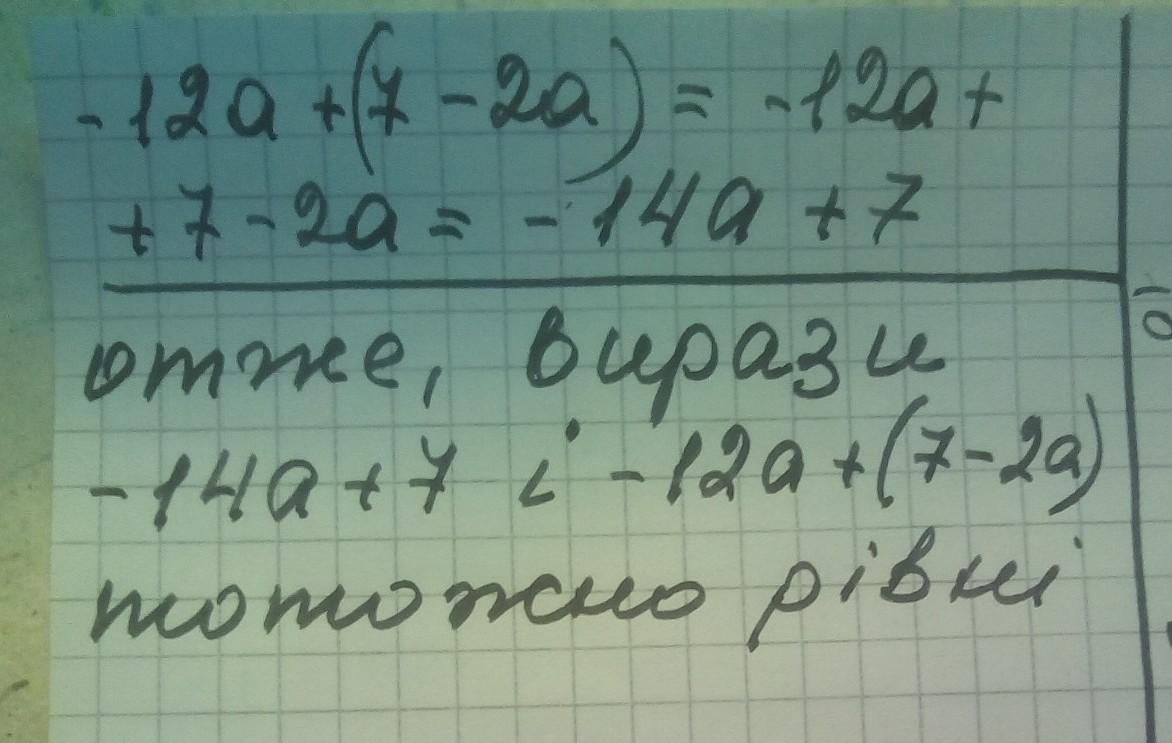 -12a + (7 - 2a) = -12a +
+ 7 - 2a = -14a + 7
отже, вирази
-14a + 7 і -12a + (7 - 2a)
тотожно рівні